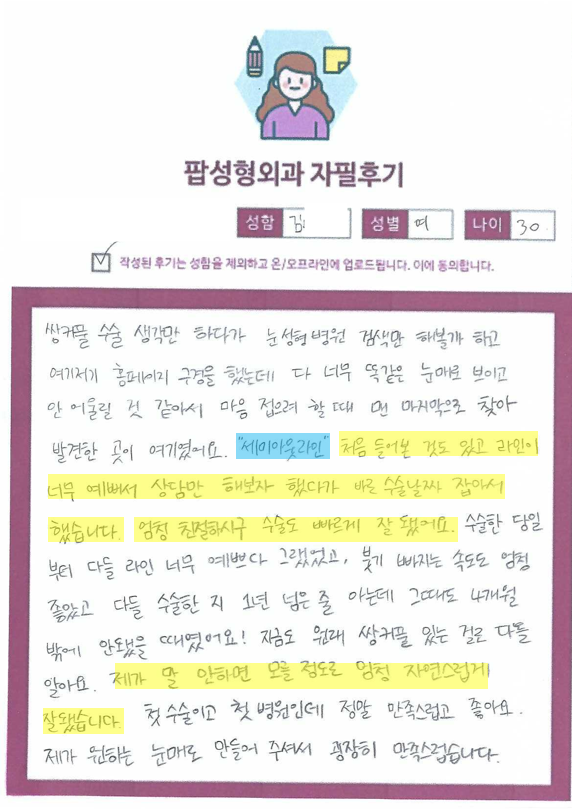 팝성형외과 자필후기
성함 김 성별 여 나이 30
작성된 후기는 성함을 제외하고 온/오프라인에 업로드됩니다. 이에 동의합니다.
쌍커풀 수술 생각만 하다가 눈성형병원 검색만 해볼까 하고
여기저기 홈페이지 구경을 했는데 다 너무 똑같은 눈매로 보이고
안 어울릴 것 같아서 마음 접으려 할 때 맨 마지막으로 찾아
발견한 곳이 여기였어요. "세미아웃라인" 처음 들어본 것도 있고 라인이
너무 예뻐서 상담만 해보자 했다가 바로 수술날짜 잡아서
했습니다. 엄청 친절하시구 수술도 빠르게 잘 됐어요. 수술한 당일
부터 다들 라인 너무 예쁘다 그랬었고, 붓기 빠지는 속도도 엄청
좋았고 다들 수술한 지 1년 넘은 줄 아는데 그때도 4개월
밖에 안됐을 때였어요! 지금도 원래 쌍커풀 있는 걸로 다들
알아요. 제가 말 안하면 모를 정도로 엄청 자연스럽게
잘됐습니다. 첫 수술이고 첫 병원인데 정말 만족스럽고 좋아요.
제가 원하는 눈매로 만들어 주셔서 굉장히 만족스럽습니다.